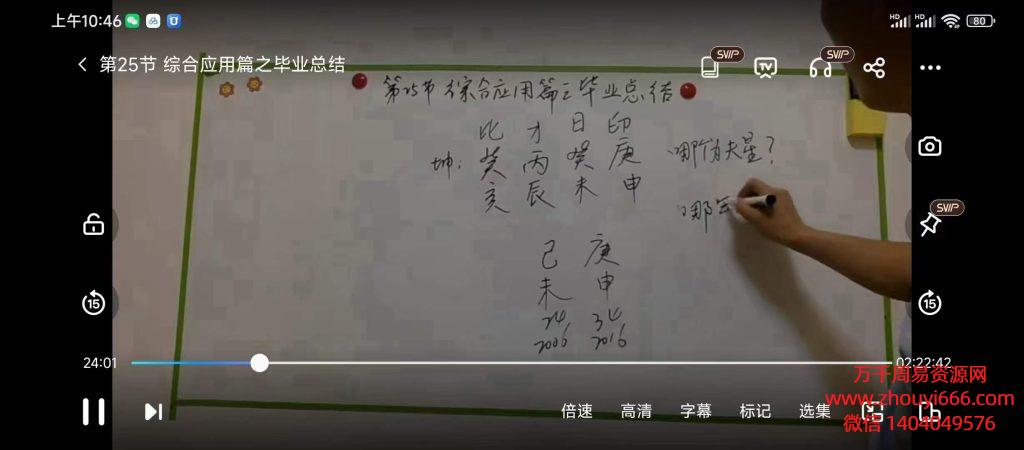 上午10:46
HD HD 80
第25节 综合应用篇之毕业总结
SVIP SVIP
TV
第25节 综合应用篇之毕业总结
比 才 日 印
坤: 癸 丙 癸 庚
亥 辰 未 申
哪个为夫星?
哪
SVIP
己 庚
未 申
24 34
2006 2016
15 15
24:01 02:22:42
倍速 高清 字幕 标记 选集
万千周易资源网
www.zhouyi666.com
微信 1404049576